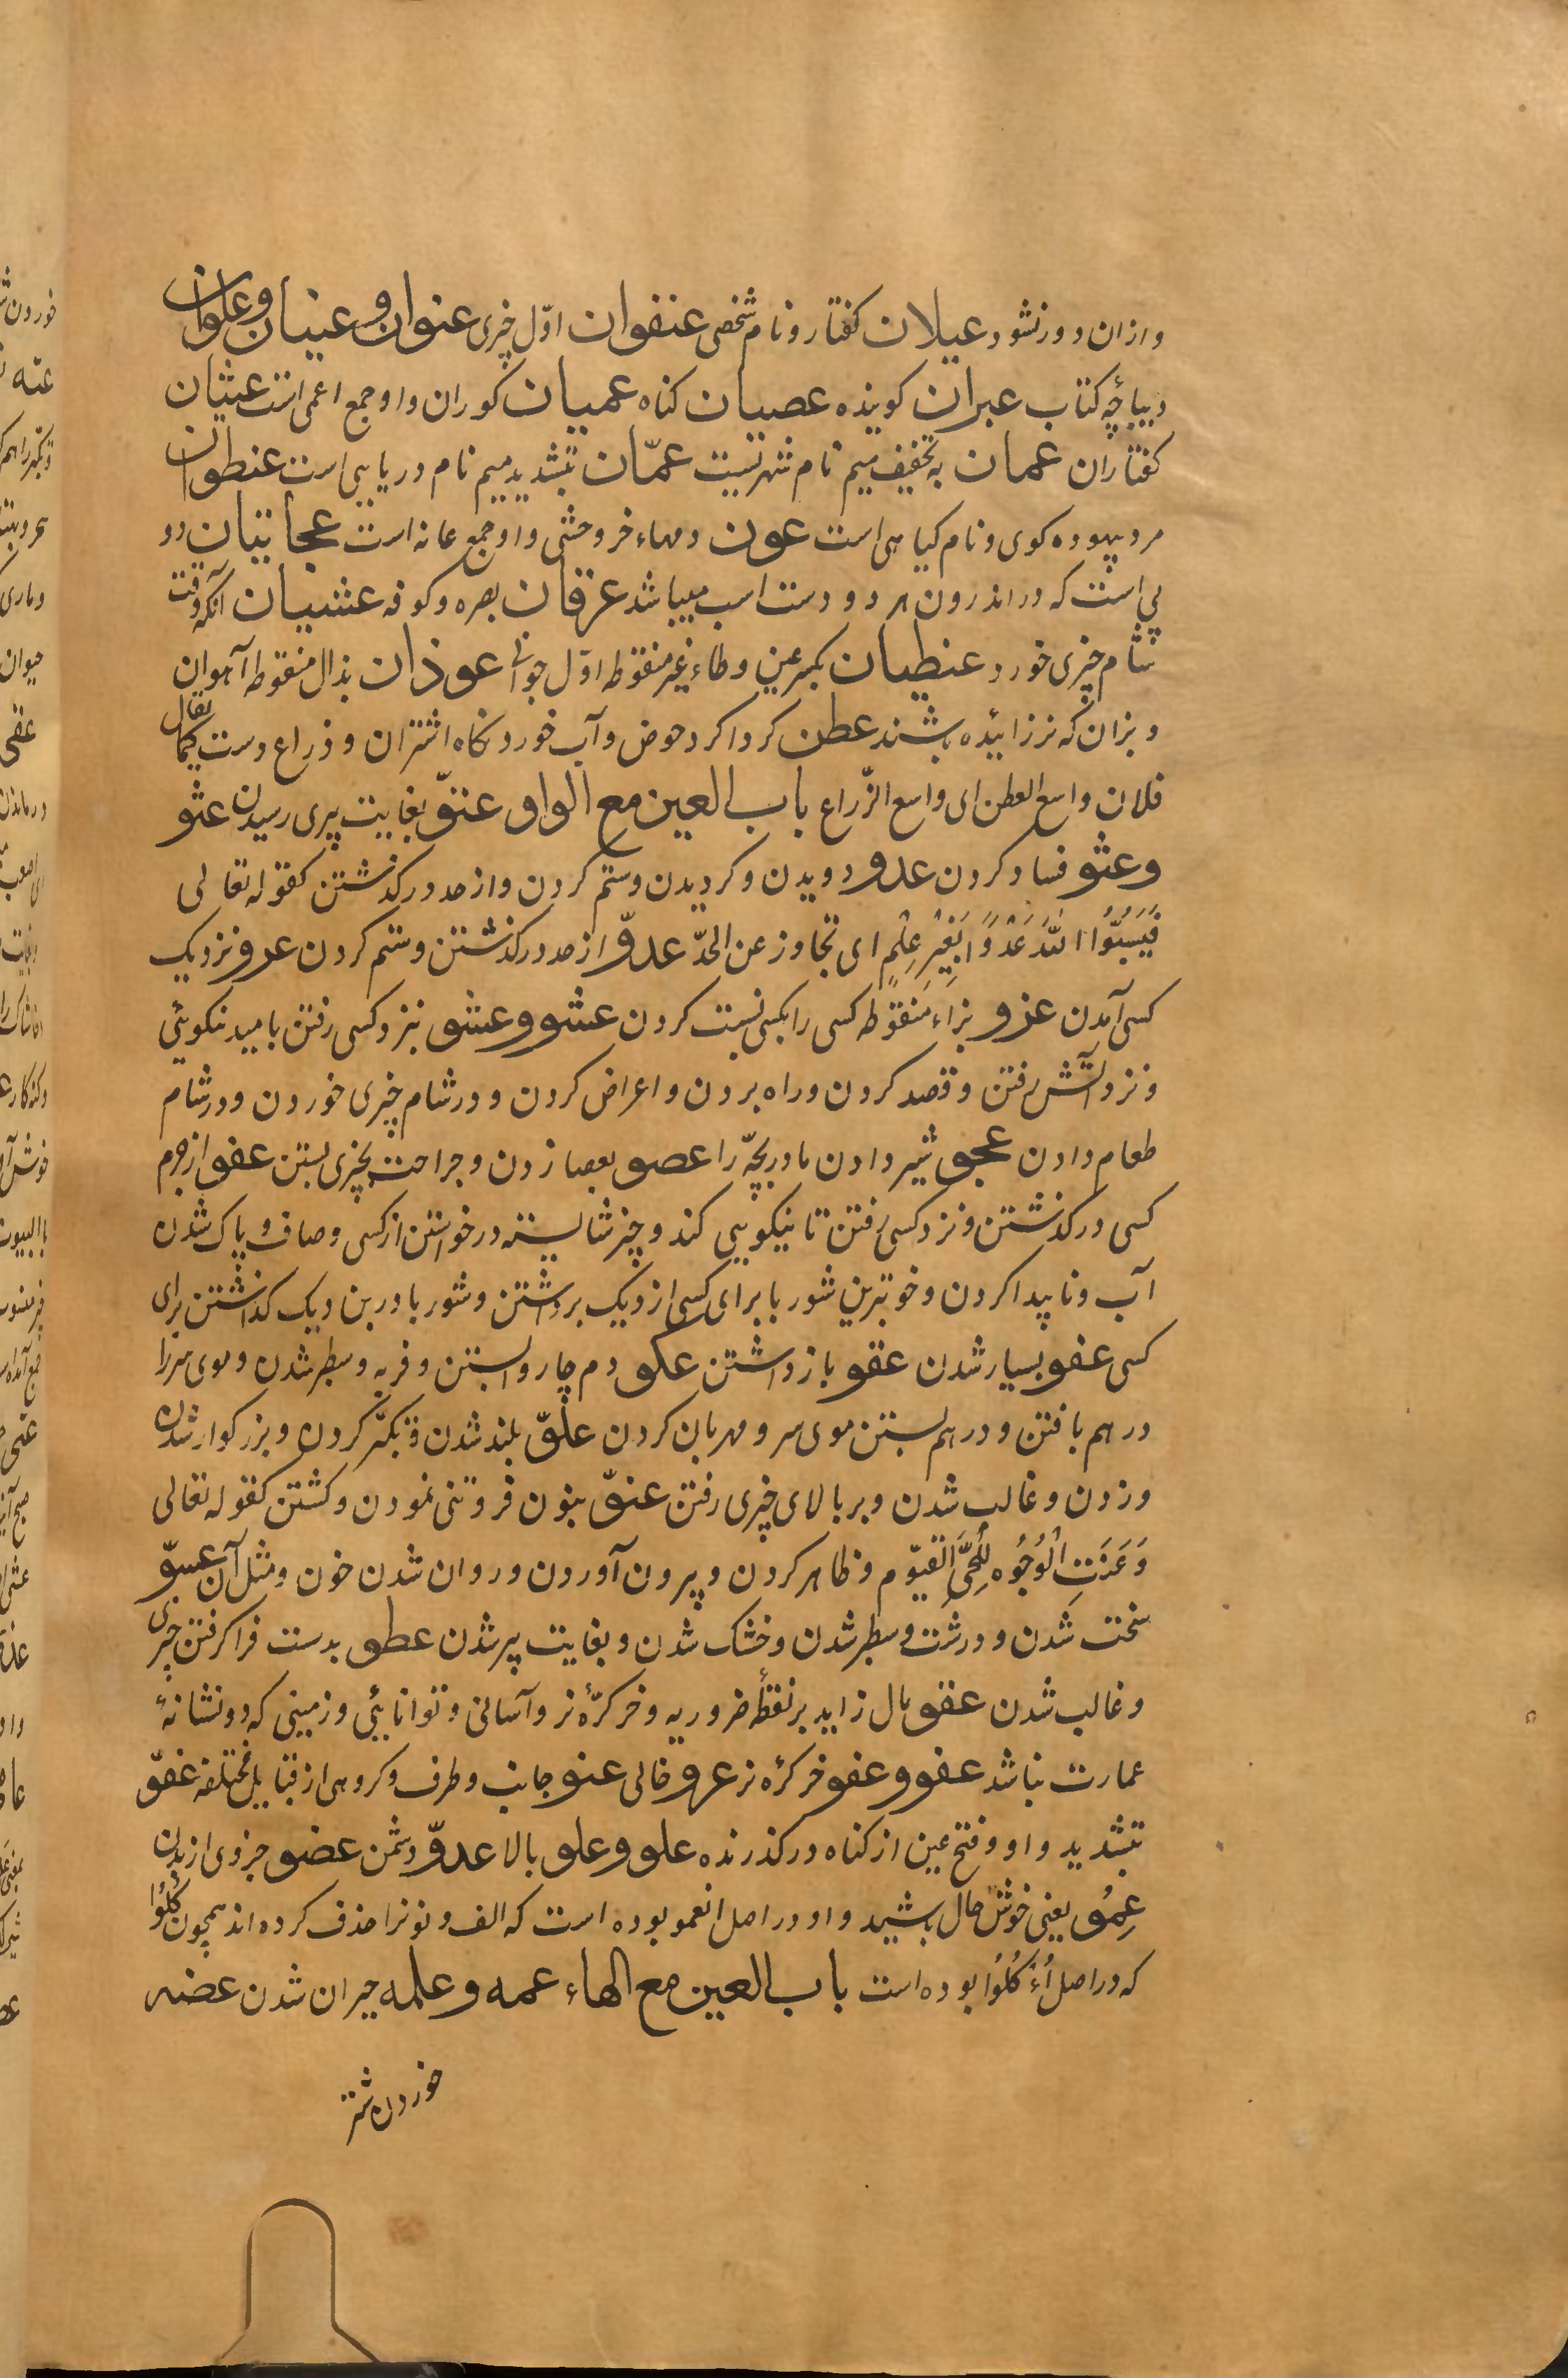 و ازان دور نشود عیلان کفتار و نام شخصی عنفوان اوّل چیزی عنوان و عنیان و علوان
دیباچهٔ کتاب عبران کوینده عصیان کناه عمیان کوران و او جمع اعمی است عثیان
کفتاران عمان به تخفیف میم نام شهریست عمّان بتشدید میم نام دریایی است عنطوان
مرد بیهوده کوی و نام کیاهی است عون دمهاء خر وحشی و او جمع عانه است عجایتان دو
پی است که در اندرون هر دو دست اسب میباشد عرقان بصره و کوفه عشیان آنکه وقت
شام چیزی خورد عنطیان بکسر عین و طاء غیر منقوطه اوّل جوانی عوذان بذال منقوطه آهوان
و بزان که نرزائیده باشند عطن کرداکرد حوض و آب خوردنکاه اشتران و ذراع دست کما یقال
فلان واسع العطن ای واسع الذّراع باب العین مع الواو عتوّ بغایت پیری رسیدن عثو
و عثو فساد کردن عدو دویدن و کردیدن و ستم کردن و از حد درکذشتن کقوله تعالی
فَیَسُبُّوا اللّٰهَ عَدْوًا بِغَیْرِ عِلْمٍ ای تجاوز عن الحدّ عدوّ از حد درکذشتن و ستم کردن عرو نزدیک
کسی آمدن عزو بزاء منقوطه کسی را بکسی نسبت کردن عشو و عشو نزد کسی رفتن بامید نیکوئی
و نزد آتش رفتن و قصد کردن و راه بردن و اعراض کردن و در شام چیزی خوردن و در شام
طعام دادن عجو شیر دادن مادر بچّه را عصو بعصا زدن و جراحت بچیزی بستن عفو از جرم
کسی درکذشتن و نزد کسی رفتن تا نیکویی کند و چیز شایسته درخواستن از کسی و صاف و پاک شدن
آب و ناپیدا کردن و خوبترین شوربا برای کسی از دیک برداشتن و شوربا در بن دیک کذاشتن برای
کسی عفو بسیار شدن عقو باز داشتن عکو دم چاروا بستن و فربه و سطبر شدن و موی سر را
در هم بافتن و در هم بستن موی سر و مهربان کردن علوّ بلند شدن و تکبّر کردن و بزرکوار شدن
و زدن و غالب شدن و بر بالای چیزی رفتن عنوّ بنون فروتنی نمودن و کشتن کقوله تعالی
وَ عَنَتِ الْوُجُوه لِلْحَیِّ القیّوم و ظاهر کردن و بیرون آوردن و روان شدن خون و مثل آن عسوّ
سخت شدن و درشت و سطبر شدن و خشک شدن و بغایت پیر شدن عطو بدست فراکرفتن چیزی
و غالب شدن عفو مال زاید بر نفقهٔ ضروریه و خر کرّهٔ نر و آسانی و توانایئی و زمینی که درو نشانهٔ
عمارت نباشد عفو و عفو خر کرّه نر عرو خالی عنو جانب و طرف و کروهی از قبایل مختلفه عفوّ
بتشدید واو و فتح عین از کناه درکذرنده علو و علو بالا عدوّ دشمن عضو جزوی از بدن
عِمُو یعنی خوش حال باشید و او در اصل انعمو بوده است که الف و نونرا حذف کرده اند همچون کُلُوْا
که در اصل اُءْکُلُوْا بوده است باب العین مع الهاء عمه و علمه حیران شدن عضه
خوردن شتر